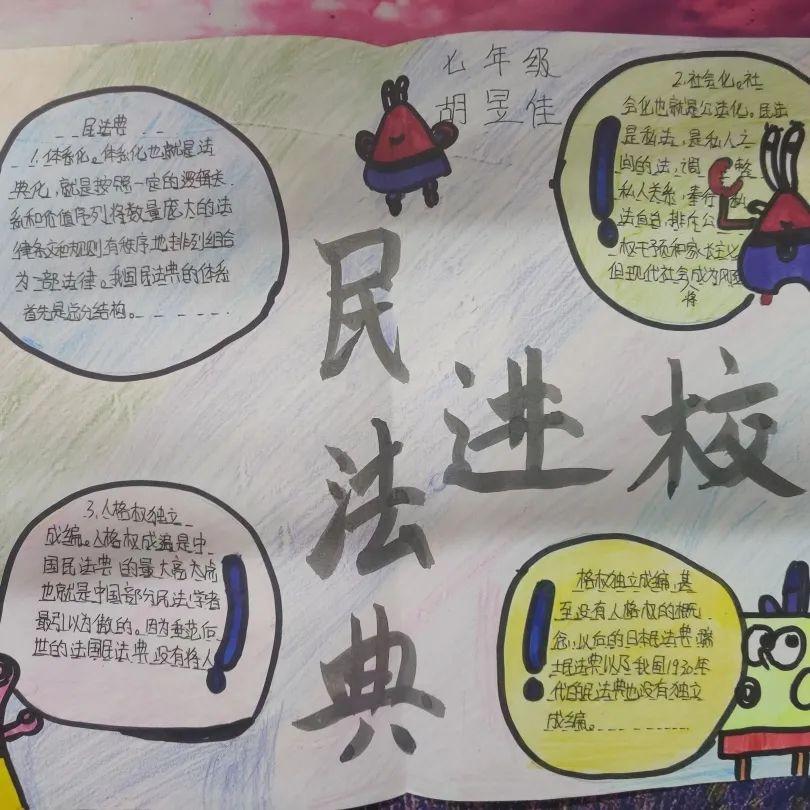 七年级
胡昱佳
民法典
进校
民法典
1.体系化。体系化也就是法
典化，就是按照一定的逻辑关
系和价值序列将数量庞大的法
律条文和规则有秩序地排列组合
为一部法律。我国民法典的体系
首先是总分结构。
2.社会化。社
会化也就是公法化。民法
是私法，是私人之
间的法，调整
私人关系，奉行私
法自治，排斥公
权干预和家长主义
但现代社会成为风险
将
3.人格权独立
成编。人格权成编是中
国民法典的最大亮大点
也就是中国部分民法学者
最引以为傲的。因为垂范后
世的法国民法典没有将人
格权独立成编，甚
至没有人格权的概
念，以后的日本民法典瑞
士民法典以及我国1930年
代的民法典也没有独立
成编。